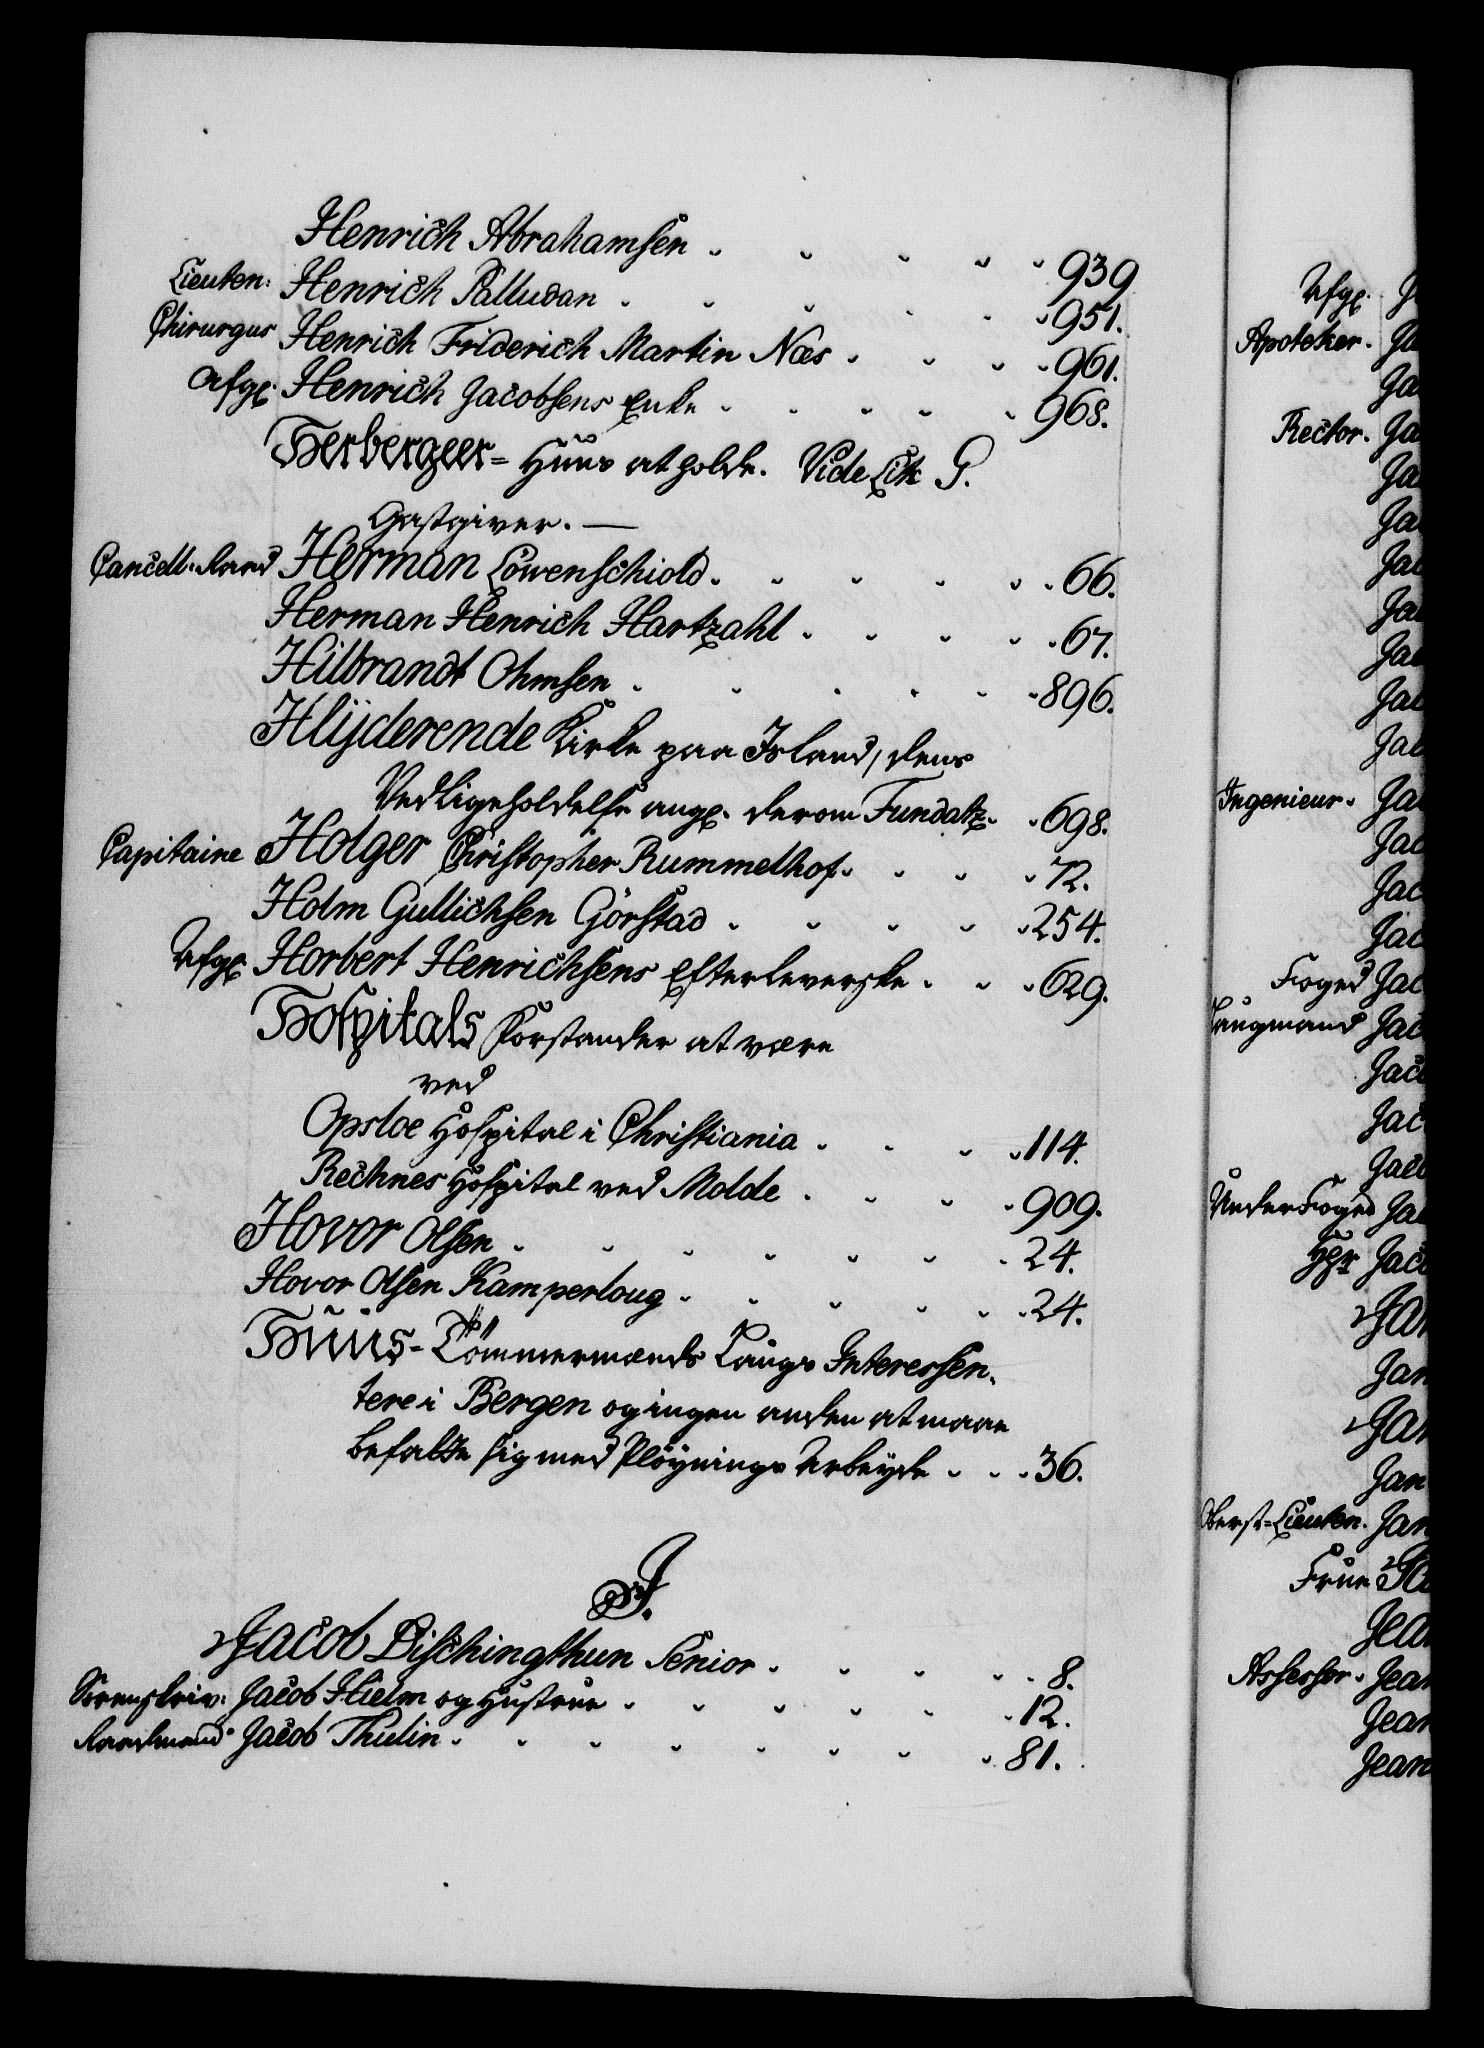 Henrich Abrahamsen . . . . . 939
Lieuten: Henrich Palludan . . . . . 951.
Chirurgus Henrich Friderich Martin Næs . . . . 961.
Afg. Henrich Jacobsens Enke . . . . . 968.
Herbergeer= Huus at holde. Vide Litr G.
Gastgiver. —
Cancell. Raad Herman Löwenschiold . . . . . 66.
Herman Henrich Hartzahl . . . . . 67.
Hilbrandt Ohmsen . . . . . 896.
Hlijderende Kirke paa Island, dens
Vedligeholdelse ang. derom Fundatz . . 698.
Capitaine Holger Christopher Rummelhof . . . . 72.
Holm Gullichsen Görstad . . . . . 254.
Afg. Horbert Henrichsens Efterleverske . . . 629.
Hospitals Forstander at være
ved
Opsloe Hospital i Christiania . . . . 114.
Rechnes Hospital ved Molde . . . . 909.
Hovor Olsen . . . . . . . 24.
Hovor Olsen Kamperloug . . . . . . 24.
Huus- Tömmermænds Laugs Interessen-
tere i Bergen og ingen anden at maae
befatte sig med Plöynings Arbeyde . . . 36.
J.
Jacob Dischingthun Senior . . . . . 8.
Sorenskriv: Jacob Hielm og Hustrue . . . . . . 12.
Raadmand Jacob Thulin . . . . . . . . 81.
Afg. J
Apoteker. Ja
Ja
Rector. Ja
Ja
Ja
Jac
Ja
Jac
Jac
Jac
Ingenieur. Jac
Jac
Jac
Jac
Foged Jac
Laugmand Jac
Jaco
Jac
Jaco
UnderFoged Jac
Hr Jaco
Jan
Jan
Jan
Jan
Oberst=Lieuten. Jan
Frue
Jean
Assessor. Jean
Jean
Jean